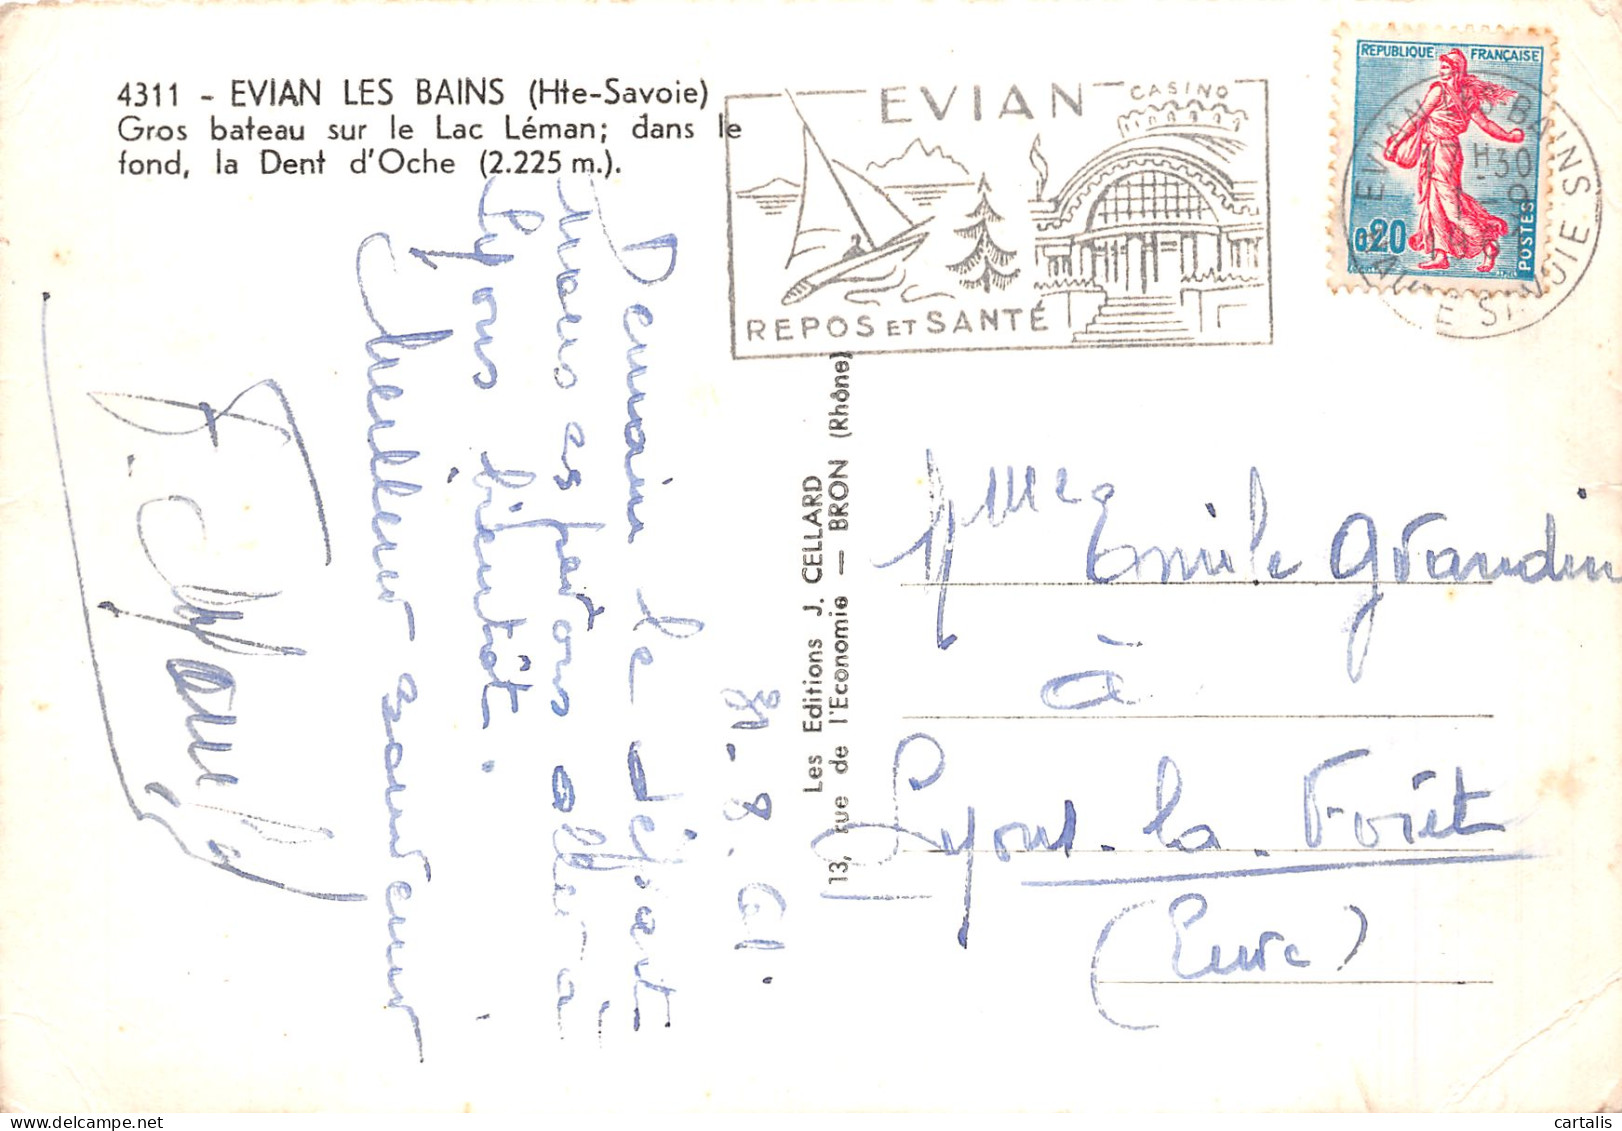 4311 - EVIAN LES BAINS (Hte-Savoie)
Gros bateau sur le Lac Léman; dans le
fond, la Dent d'Oche (2.225 m.).
EVIAN
CASINO
REPOS ET SANTÉ
REPUBLIQUE FRANÇAISE
0,20
POSTES
EVIAN LES BAINS
17 H 30
1 - 9
HAUTE SAVOIE
Les Editions J. CELLARD
13, rue de l'Economie — BRON (Rhône)
31. 8. 61.
Demain le départ
nous espérons aller à
Lyons bientôt.
Meilleur souvenir
Mme Emile Grandin
à
Lyons-la-Forêt
(Eure)
cartalis
delcampe.net